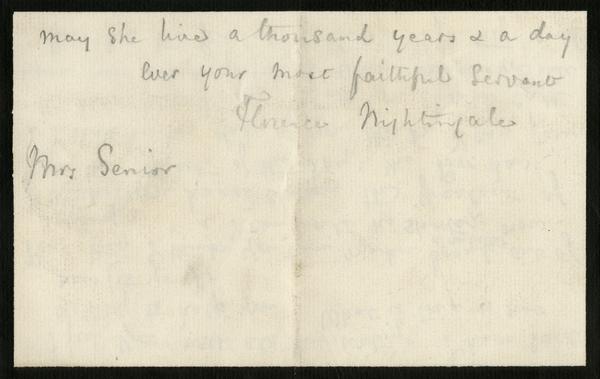 may she live a thousand years & a day
ever your most faithful servant
Florence Nightingale
Mrs Senior